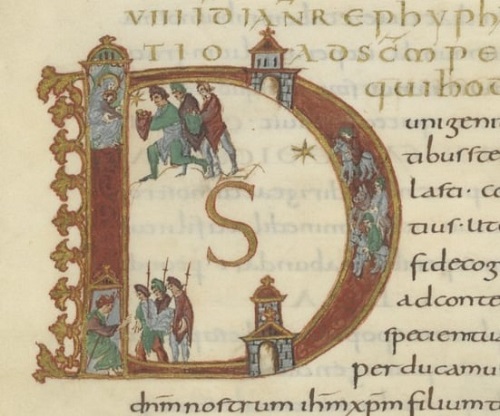 VIII ID IANR EPHYPH
TIO AD SCM PE
DS quihod
unigeni
tibusste
lasti· co
tius· Ut
fidecog
adconte
speciemtua
perducamu
dnm nostrum ihm xpm filium t